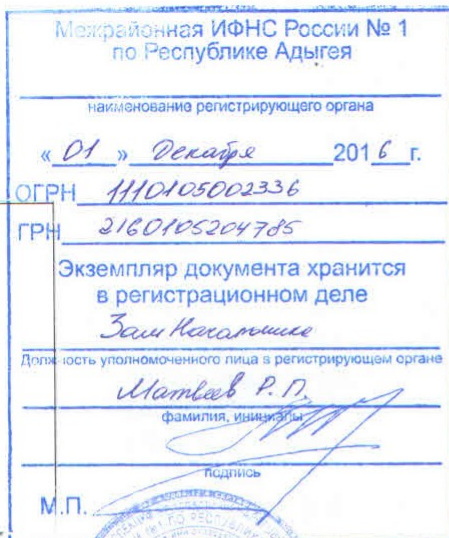 Межрайонная ИФНС России № 1
по Республике Адыгея
наименование регистрирующего органа
« 01 » Декабря 2016 г.
ОГРН 1110105002336
ГРН 2160105204785
Экземпляр документа хранится
в регистрационном деле
Зам Начальника
Должность уполномоченного лица в регистрирующем органе
Матвеев Р.П.
фамилия, инициалы
подпись
М.П.